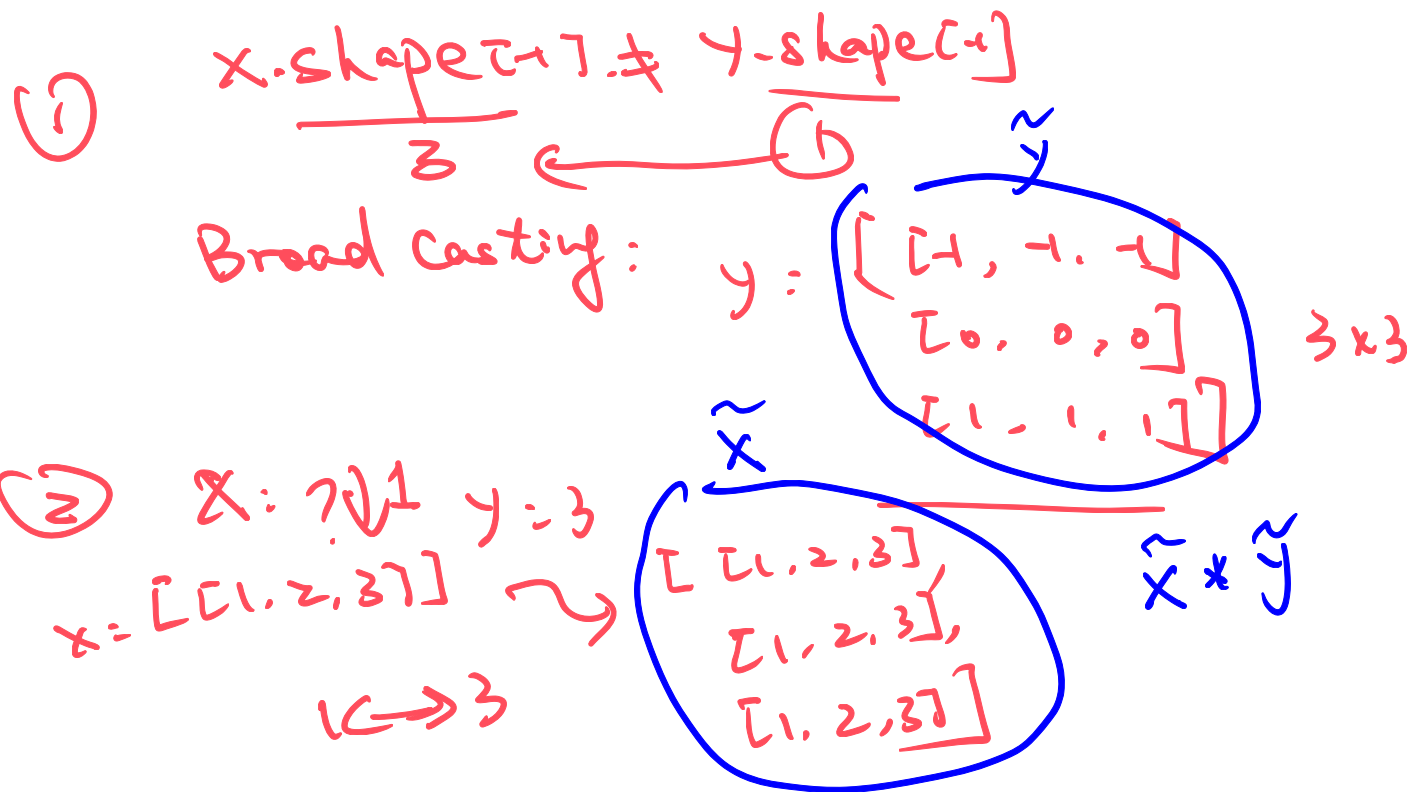 ① x.shape[-1] ≠ y.shape[-1]
3 ← ①
ỹ
Broad Casting: y = [[-1, -1, -1]
[0, 0, 0]
[1, 1, 1]]
3x3
② x: ? 1 y = 3
x = [[1, 2, 3]]
1 ↔ 3
x̃
[[1, 2, 3],
[1, 2, 3],
[1, 2, 3]]
x̃ * ỹ